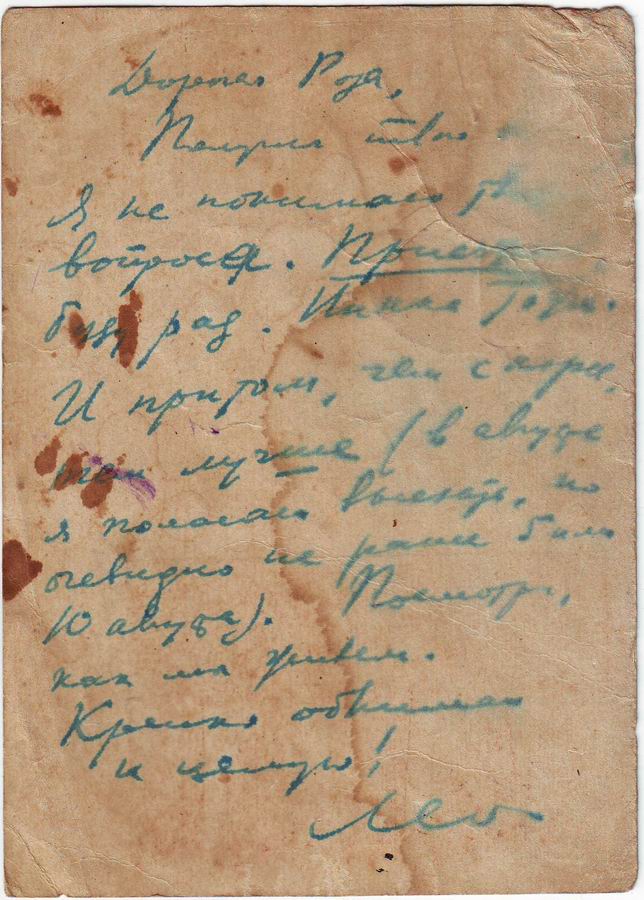 Дорогая Роза,
Получил твою
Я не понимаю
вопроса. Приезжай,
буду рад.
И притом, чем скорее,
тем лучше (в августе
я полагаю выехать, но
очевидно не раньше
10 августа). Посмотри,
как мы живем.
Крепко обнимаю
и целую!
Лев